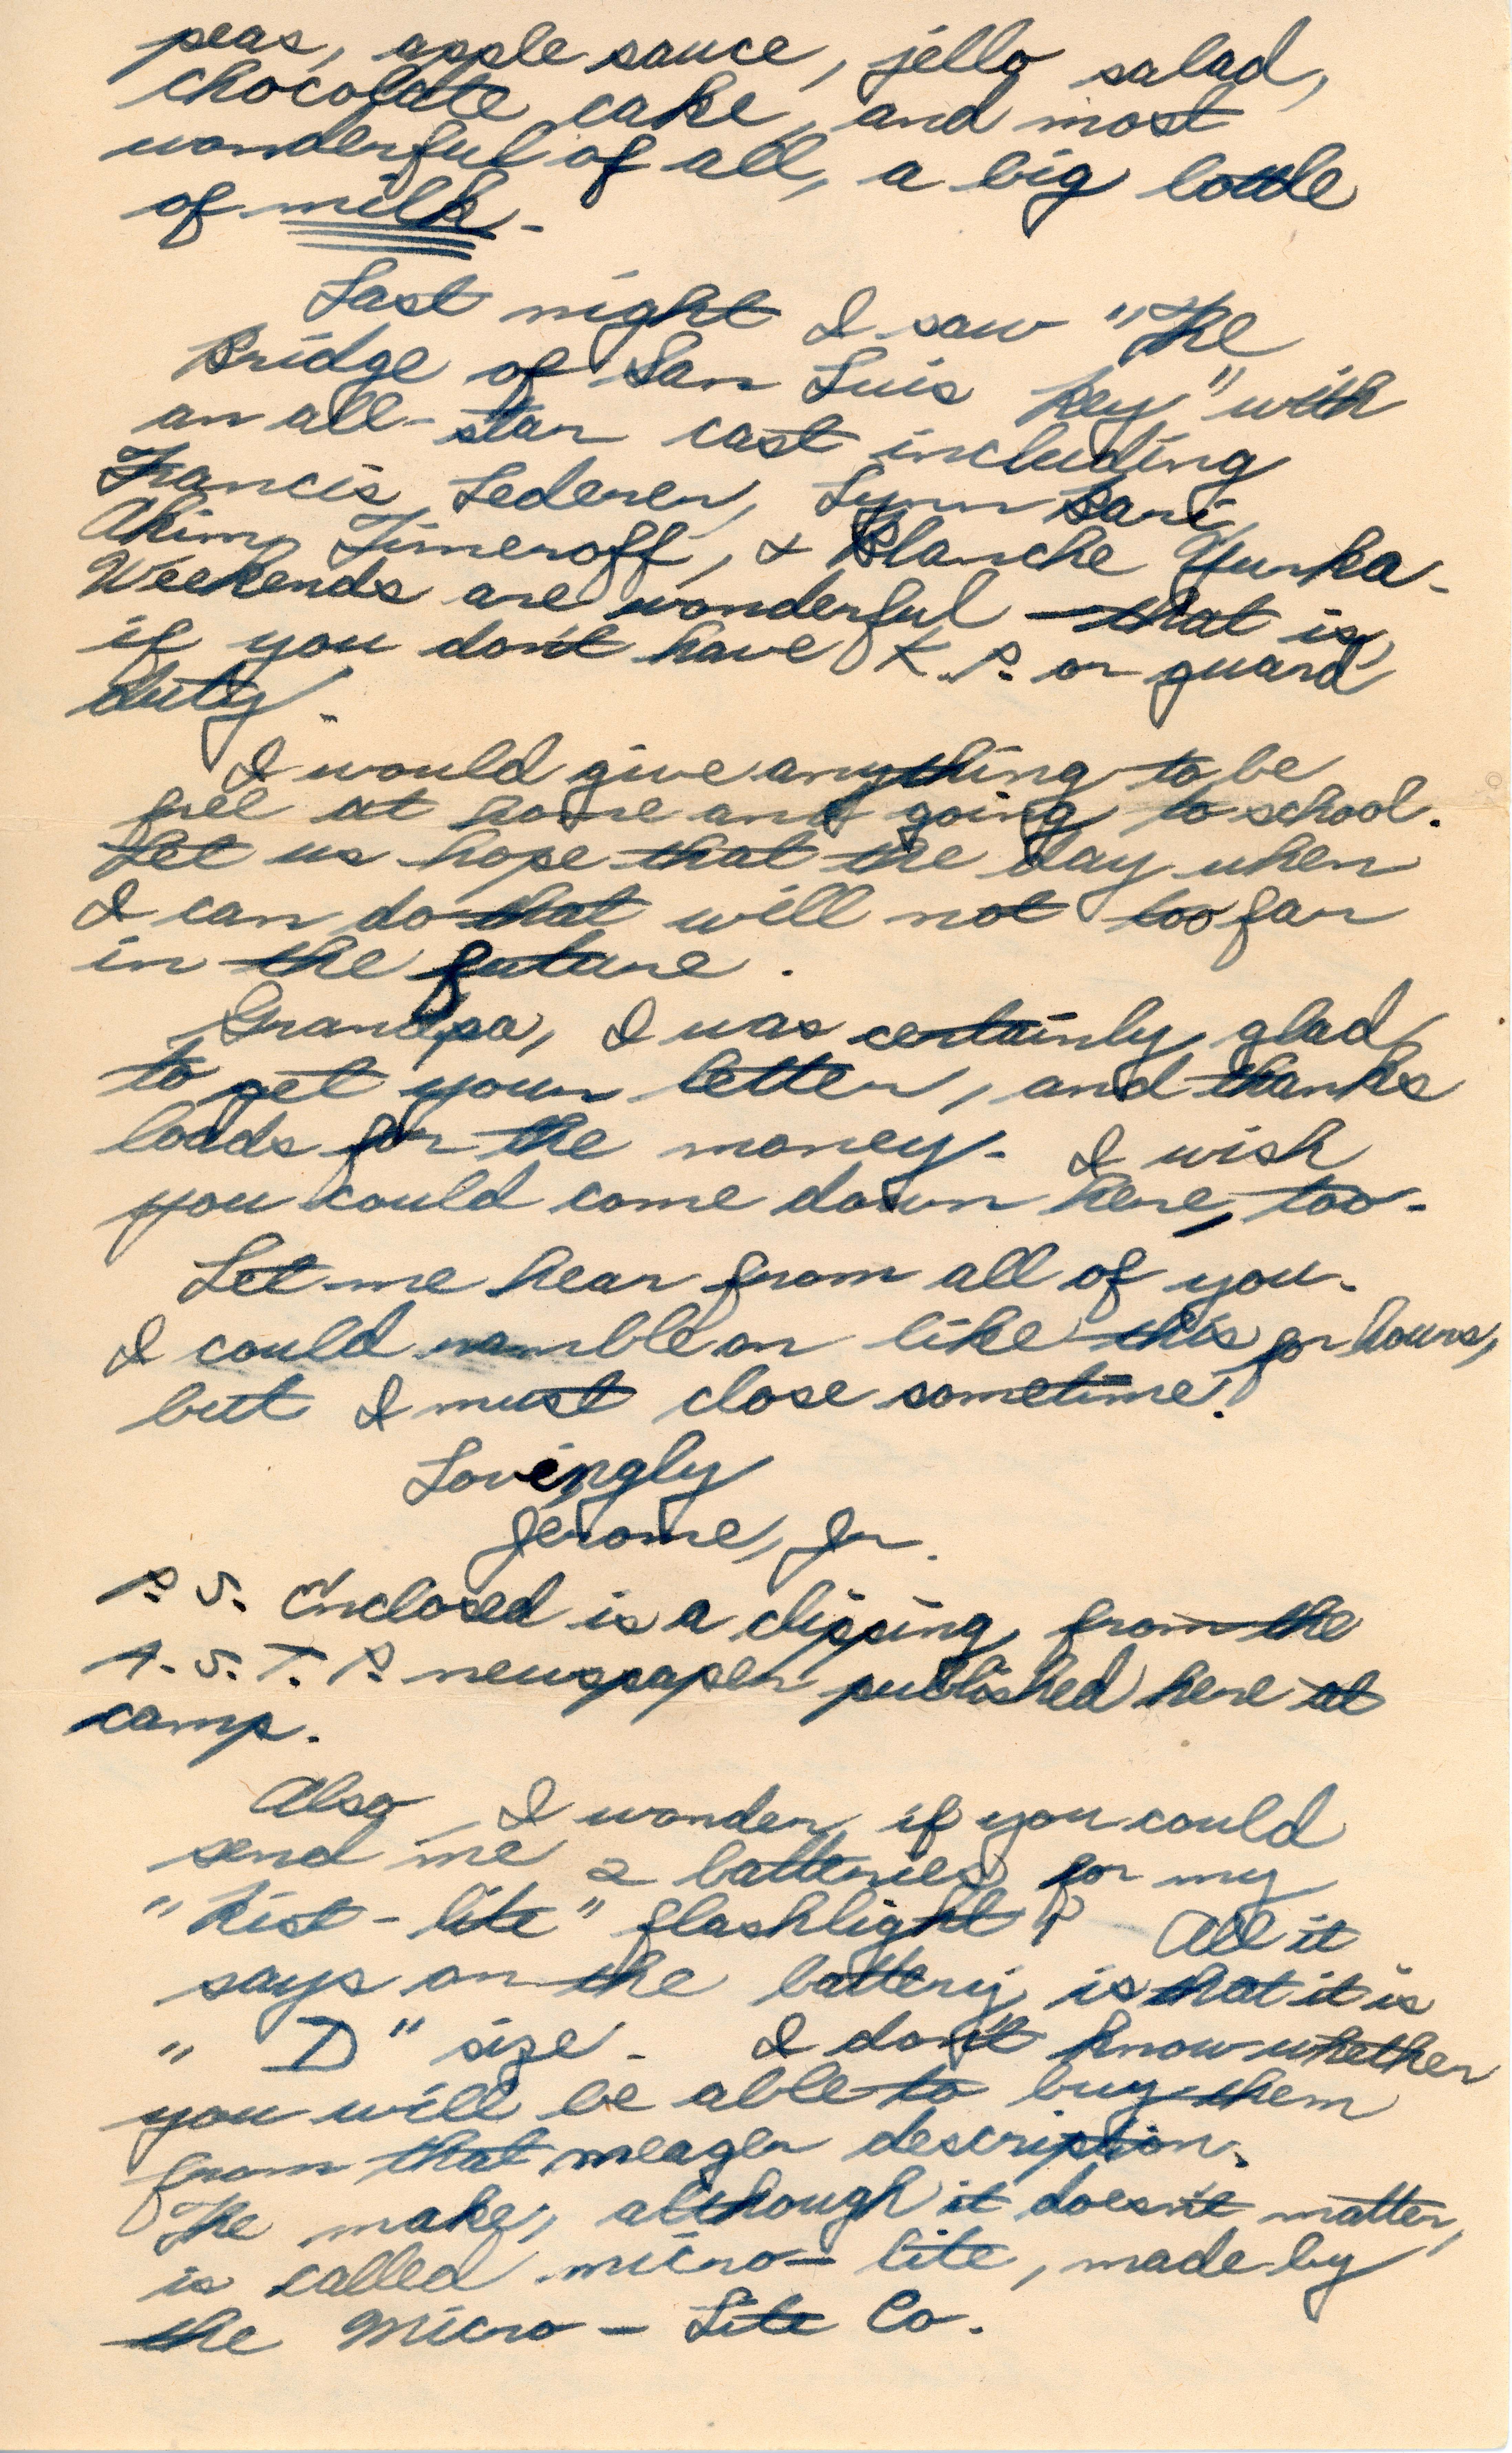 peas, apple sauce, jello salad,
chocolate cake, and most
wonderful of all, a big bottle
of milk.
Last night I saw "The
Bridge of San Luis Rey" with
an all-star cast including
Francis Lederer, Lynn Bari,
Akim Timeroff, & Blanche Yurka.
Weekends are wonderful - that is,
if you don't have K.P. or guard
duty.
I would give anything to be
free at home and going to school.
Let us hope that the day when
I can do that will not too far
in the future.
Grandpa, I was certainly glad
to get your letter, and thanks
loads for the money. I wish
you could come down here, too.
Let me hear from all of you.
I could ramble on like this for hours,
but I must close sometime!
Lovingly
Jerome, Jr.
P.S. Enclosed is a clipping from the
A.S.T.P. newspaper published here at
camp.
Also, I wonder if you could
send me 2 batteries for my
"Rist-lite" flashlight? All it
says on the battery is that it is
"D" size. I don't know whether
you will be able to buy them
from that meager description.
The make, although it doesn't matter,
is called micro-lite, made by
the Micro-Lite Co.